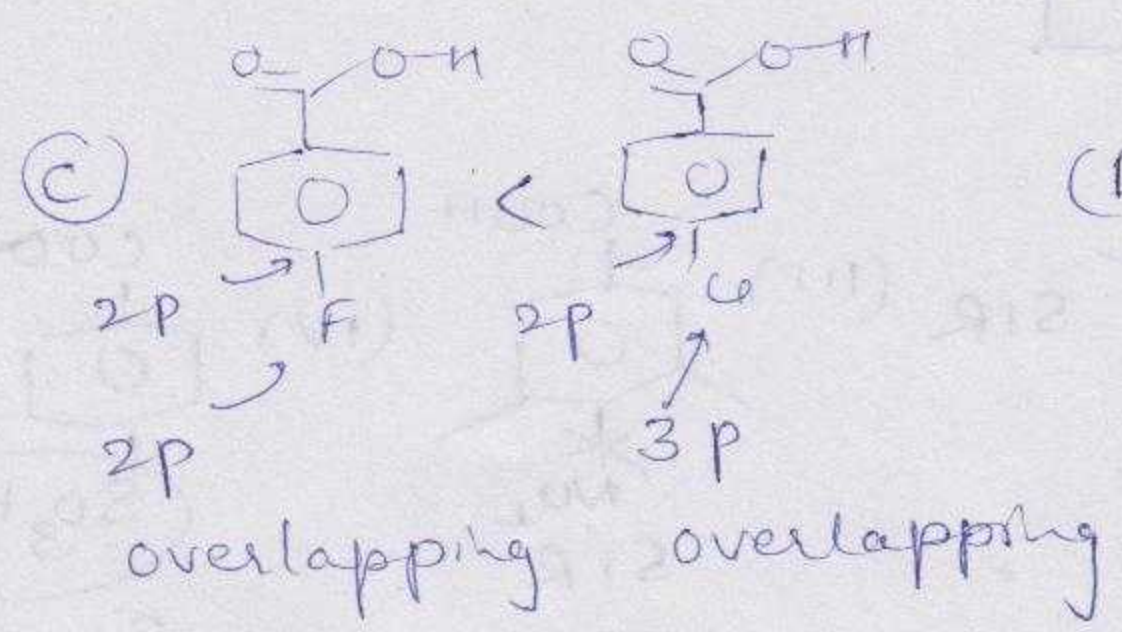 O O-H O O-H
C <
2p F 2p Cl
2p 3p
overlapping overlapping